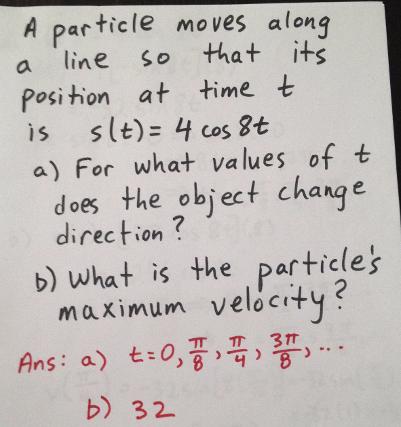 A particle moves along
a line so that its
position at time t
is s(t) = 4 cos 8t
a) For what values of t
does the object change
direction?
b) What is the particle's
maximum velocity?
Ans: a) t=0, π/8, π/4, 3π/8, ...
b) 32